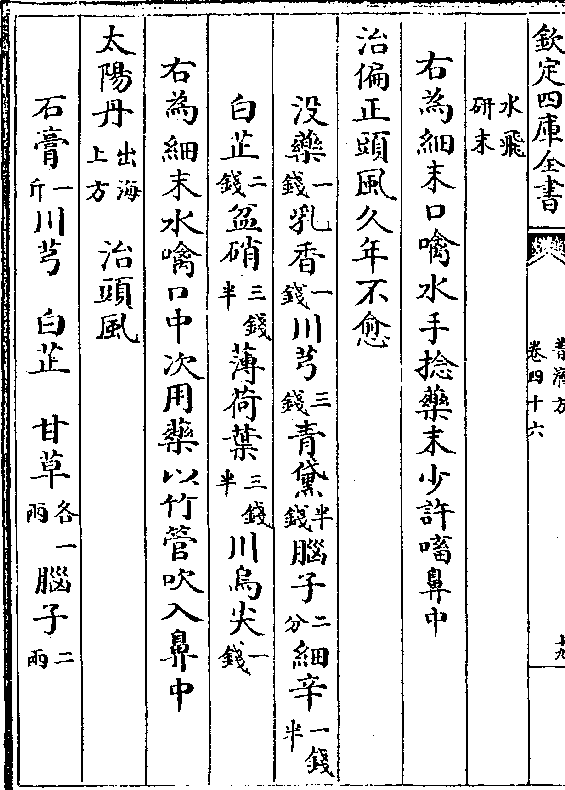 欽定四庫全書
普濟方
卷四十六
十九
水飛研末
右為細末口噙水手捻藥末少許㗜鼻中
治偏正頭風久年不愈
沒藥一錢乳香一錢川芎三錢青黛半錢腦子二分細辛一錢半
白芷二錢盆硝三錢半薄荷葉三錢半川烏尖一錢
右為細末水噙口中次用藥以竹管吹入鼻中
太陽丹出海上方 治頭風
石膏一斤川芎 白芷 甘草各一兩腦子二兩